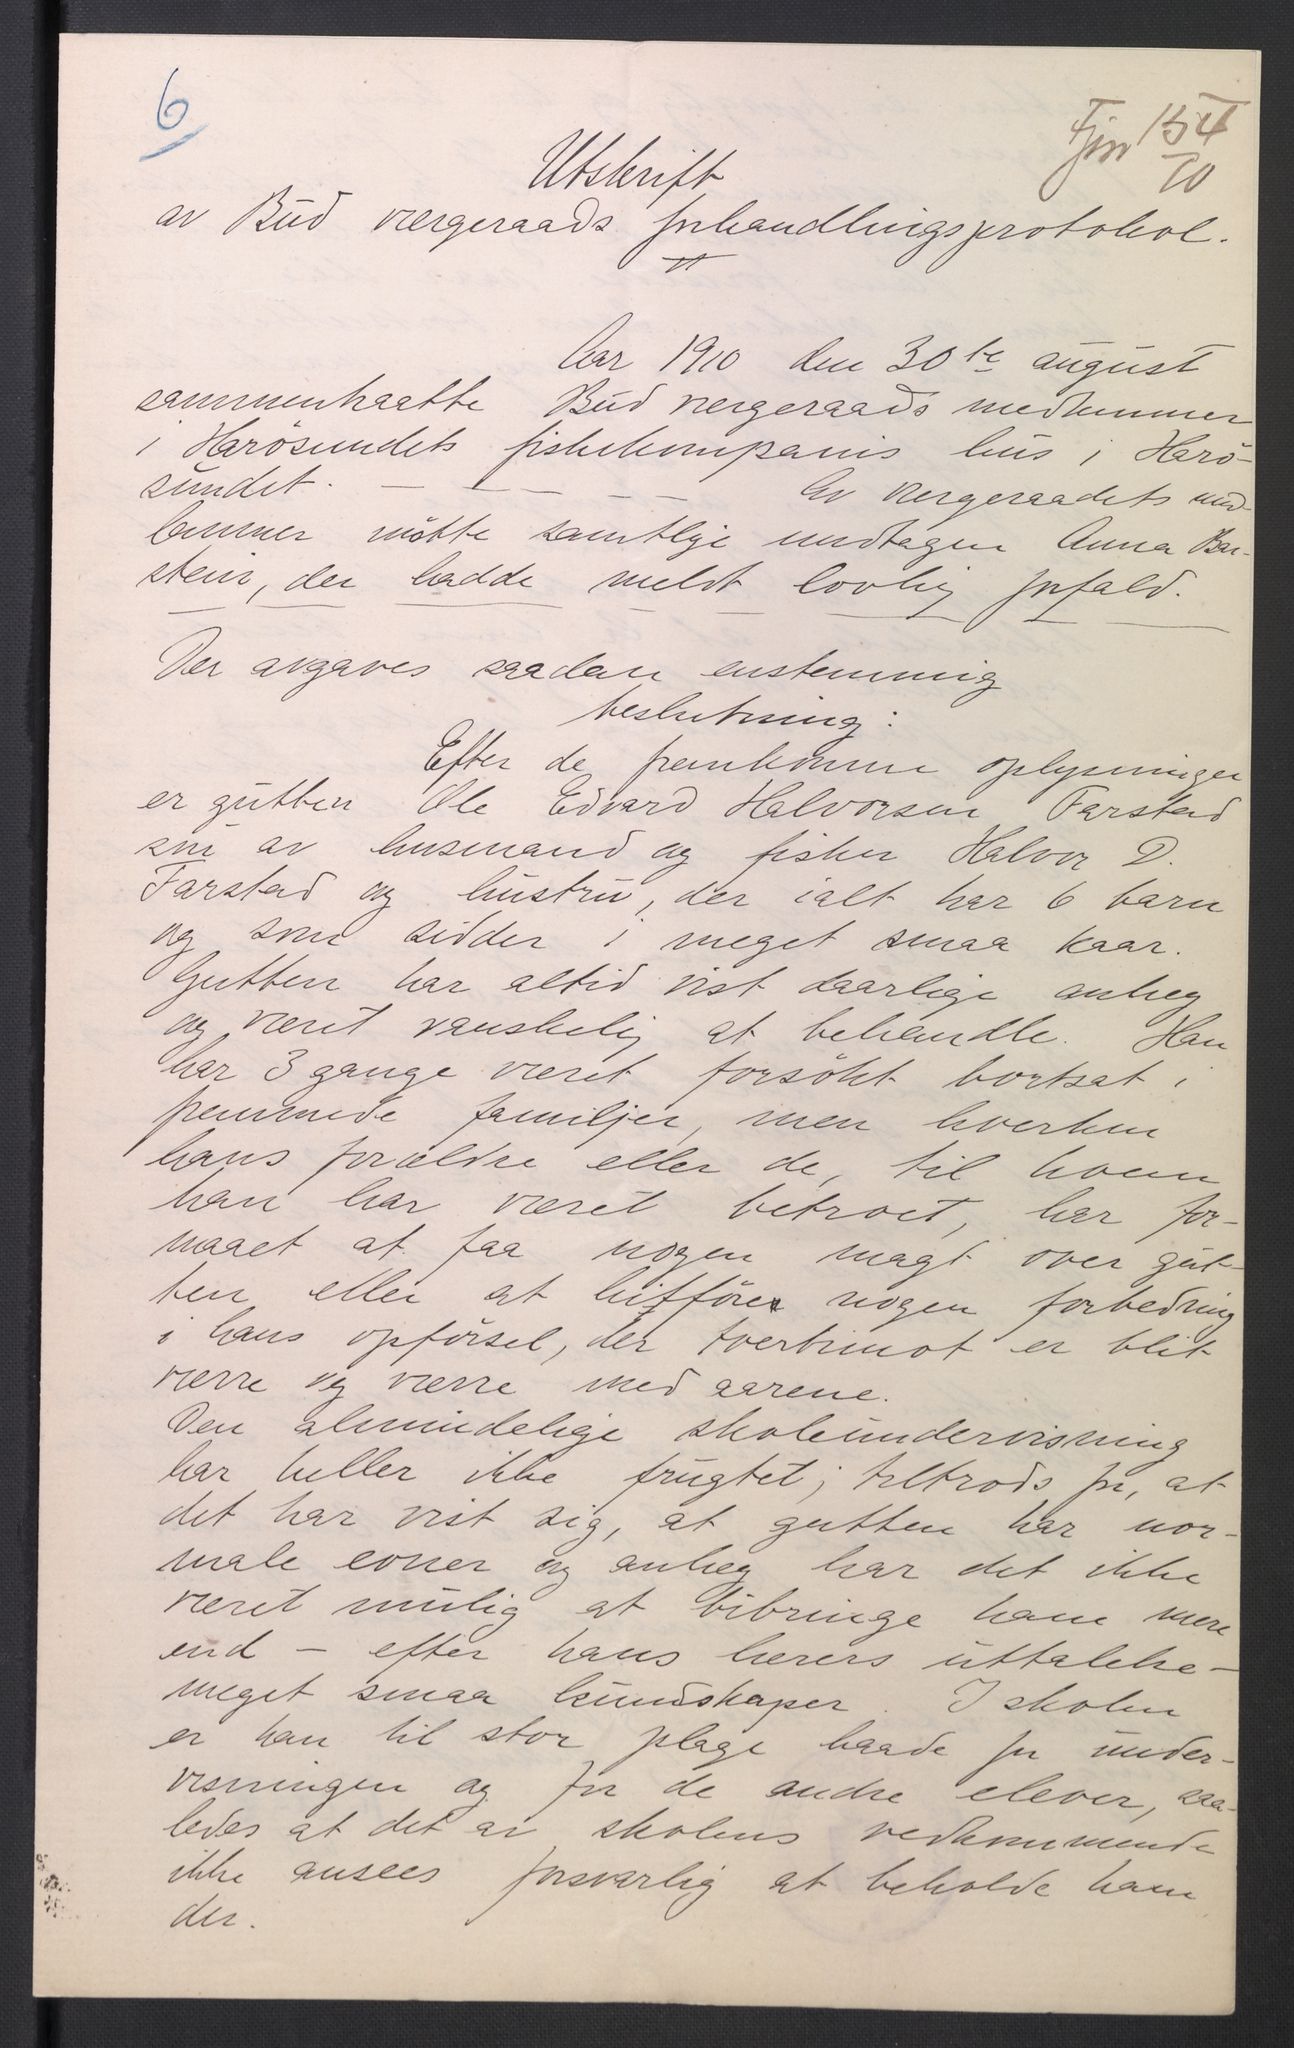 6
154
10
Utskrift
av Bud vergeraads forhandlingsprotokol.
Aar 1910 den 30te august
sammenhaatte Bud vergeraads medlemmer
i Harösundets fiskekompanis hus i Harö-
sundet. — — — — Av vergeraadets med-
lemmer mötte samtlige undtagen Anna Bar-
stein, der hadde meldt lovlig forfald.
Der avgaves saadan enstemmig
beslutning:
Efter de fremkomne oplysninger
er gutten Ole Edvard Halvorsen Farstad
sön av husmand og fisker Halvor D.
Farstad og hustru, der ialt har 6 barn
og som sidder i meget smaa kaar.
Gutten har altid vist daarlige anlæg
og været vanskelig at behandle. Han
har 3 gange været forsökt bortsat i
fremmede familjer, men hverken
hans forældre eller de, til hvem
han har været betroet, har for-
maaet at faa nogen magt over gut-
ten eller at hitföre nogen forbedring
i hans opförsel, der tvertimot er blit
værre og værre med aarene.
Den almindelige skoleundervisning
har heller ikke frugtet; tiltrods for, at
det har vist sig, at gutten har nor-
male evner og anlæg har det ikke
været mulig at bibringe ham mere
end — efter hans lærers uttalelse —
meget smaa kundskaper. I skolen
er han til stor plage baade for under-
visningen og for de andre elever, saa-
ledes at det av skolens vedkommende
ikke ansees forsvarlig at beholde ham
der.